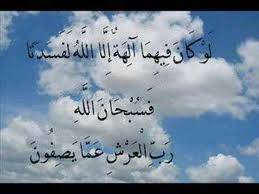 لَوْ كَانَ فِيهِمَا آلِهَةٌ إِلَّا اللَّهُ لَفَسَدَتَا
فَسُبْحَانَ اللَّهِ
رَبِّ الْعَرْشِ عَمَّا يَصِفُونَ